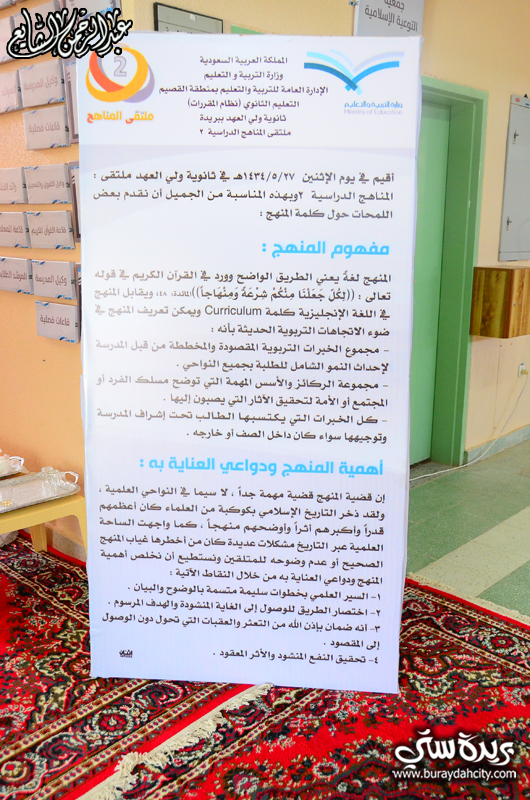 عبدالرحمن الشايع
جمعية
التوعية الإسلامية
المملكة العربية السعودية
وزارة التربية و التعليم
الإدارة العامة للتربية والتعليم بمنطقة القصيم
التعليم الثانوي (نظام المقررات)
ثانوية ولي العهد ببريدة
ملتقى المناهج الدراسية ٢
2
ملتقى المناهج
وزارة التربية والتعليم
Ministry of Education
أقيم في يوم الإثنين ١٤٣٤/٥/٢٧هـ في ثانوية ولي العهد ملتقى :
المناهج الدراسية ٢وبهذه المناسبة من الجميل أن نقدم بعض
اللمحات حول كلمة المنهج :
مفهوم المنهج :
المنهج لغة يعني الطريق الواضح وورد في القرآن الكريم في قوله
تعالى : ((لِكُلٍّ جَعَلْنَا مِنْكُمْ شِرْعَةً وَمِنْهَاجاً))(المائدة، ٤٨)، ويقابل المنهج
في اللغة الإنجليزية كلمة Curriculum ويمكن تعريف المنهج في
ضوء الاتجاهات التربوية الحديثة بأنه :
– مجموع الخبرات التربوية المقصودة والمخططة من قبل المدرسة
لإحداث النمو الشامل للطلبة بجميع النواحي .
– مجموعة الركائز والأسس المهمة التي توضح مسلك الفرد أو
المجتمع أو الأمة لتحقيق الآثار التي يصبون إليها .
– كل الخبرات التي يكتسبها الطالب تحت إشراف المدرسة
وتوجيهها سواء كان داخل الصف أو خارجه .
أهمية المنهج ودواعي العناية به :
إن قضية المنهج قضية مهمة جداً ، لا سيما في النواحي العلمية ،
ولقد ذخر التاريخ الإسلامي بكوكبة من العلماء كان أعظمهم
قدراً وأكبرهم أثراً وأوضحهم منهجاً ، كما واجهت الساحة
العلمية عبر التاريخ مشكلات عديدة كان من أخطرها غياب المنهج
الصحيح أو عدم وضوحه للمتلقين ونستطيع أن نخلص أهمية
المنهج ودواعي العناية به من خلال النقاط الآتية :
١- السير العلمي بخطوات سليمة متسمة بالوضوح والبيان .
٢- اختصار الطريق للوصول إلى الغاية المنشودة والهدف المرسوم .
٣- أنه ضمان بإذن الله من التعثر والعقبات التي تحول دون الوصول
إلى المقصود .
٤- تحقيق النفع المنشود والأثر المعقود .
وكيل المدرسة
قاعة القرآن الكريم
وكيل المدرسة
قاعات فصلية
قاعات فصلية
بريدة ستي
www.buraydahcity.com